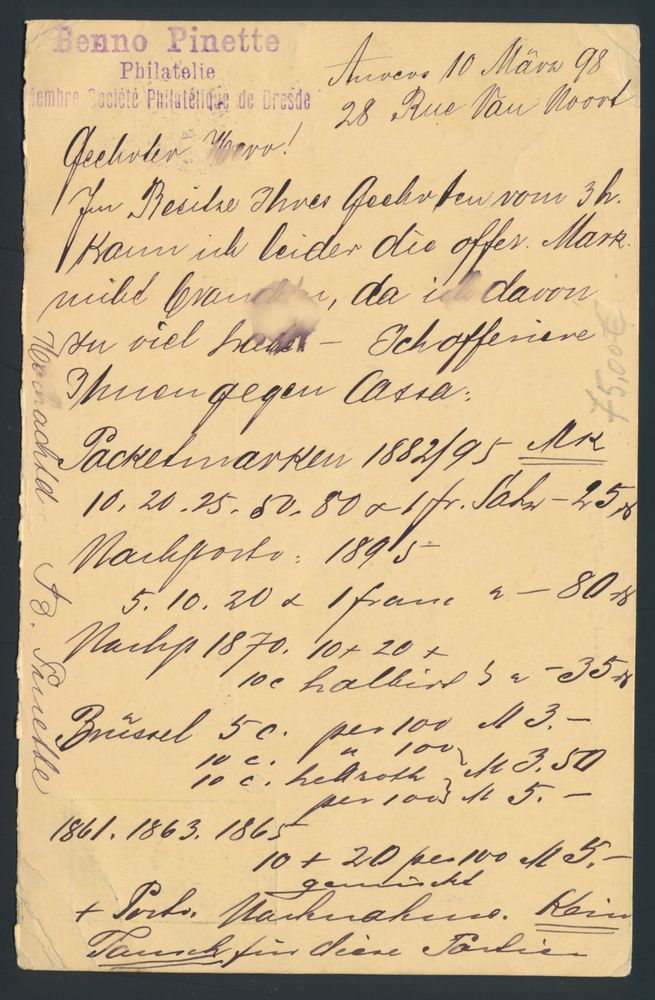 Benno Pinette
Philatelie
Membre Société Philatélique de Dresde
Anvers 10 März 98
28 Rue Van Noort
Geehrter Herr!
Im Besitze Ihres Geehrten vom 3 h.
Kann ich leider die offer. Mark.
nicht brauchen, da ich davon
zu viel habe – Ich offeriere
Ihnen gegen Cassa:
Packetmarken 1882/95 Mk
10. 20. 25. 50. 80 & 1 fr. Satz – 25
Nachporto: 1895
5. 10. 20 & 1 franc " – 80
Nachp 1870. 10 + 20 +
10c halbirt " – 35
Brüssel 5 c. per 100 M 3.–
10 c. " 100 M 3.50
10 c. hellroth
per 100 M 5.–
1861. 1863. 1865
10 + 20 per 100 M 5.–
gemischt
+ Porto. Nachnahme. Kein
Tausch für diese Partien
B. Pinette
75,00€